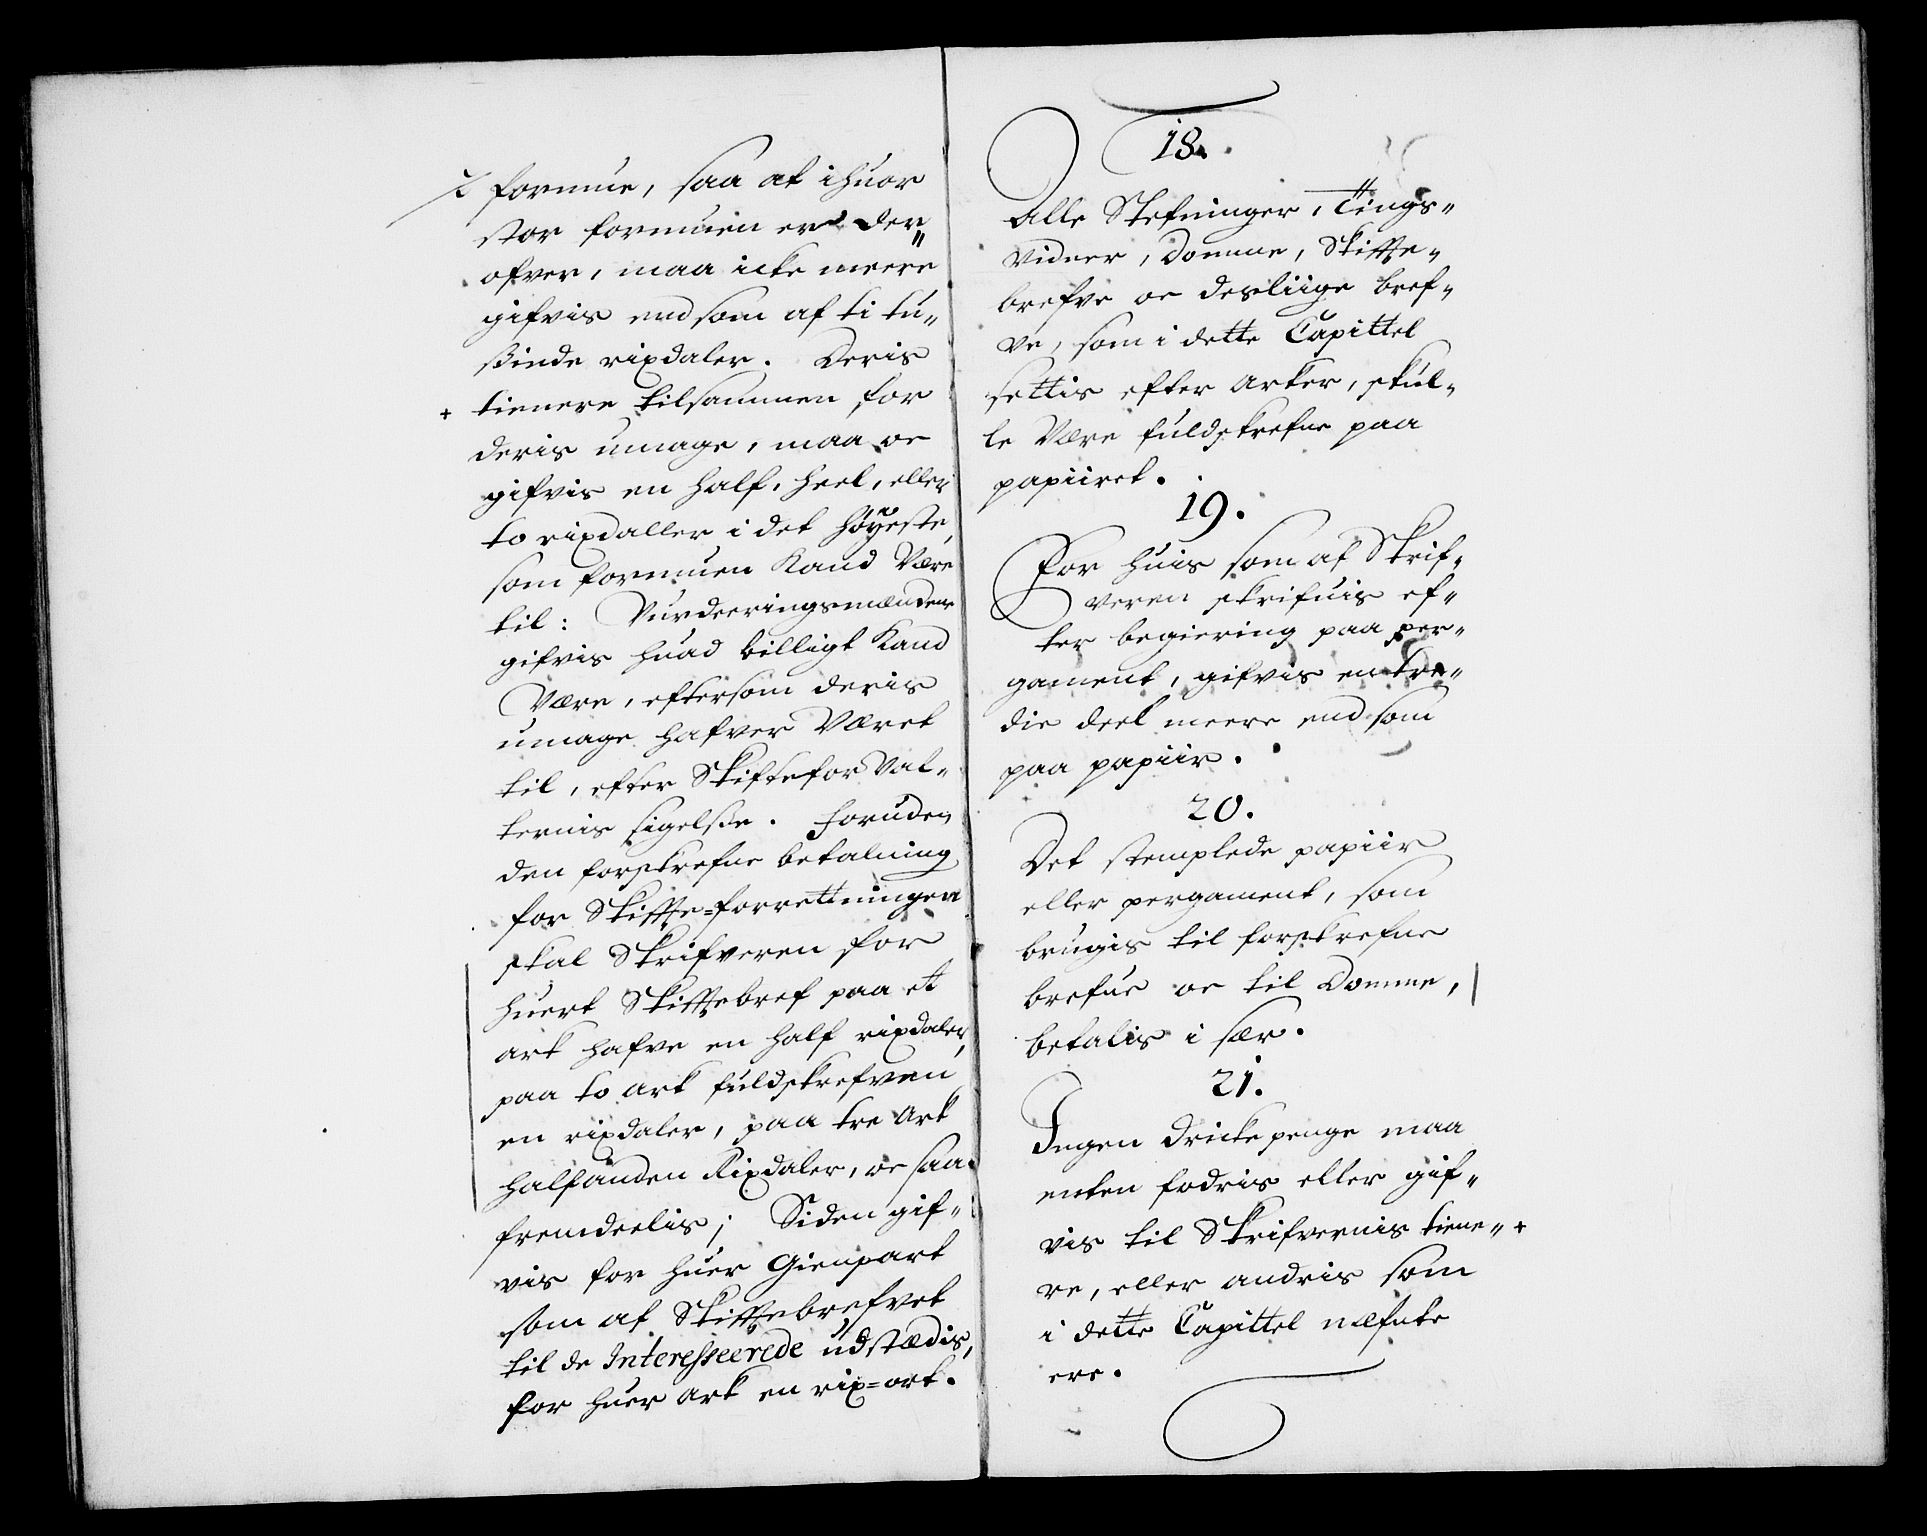 formue, saa at ihuor
stor formuen er der„
ofver, maa icke meere
gifvis end som af ti tu„
ßinde rixdaler. Deris
+ tienere tilsammen for
deris umage, maa oc
gifvis en half, heel, eller
to rixdaller i det høyeste,
som formuen Kand Være
til: Vurdeeringsmændene
gifvis huad billigt Kand
Være, eftersom deris
umage hafver Været
til, efter Skifteforval„
ternis sigelse. Foruden
den forskrefne betalning
for Skifte=forrettningen
skal Skrifveren for
huert Skiftebref paa et
ark hafve en half rixdaler,
paa to ark fuldskrefven
en rixdaler, paa tre Ark
halfanden Rixdaler, oc saa
fremdeelis; Siden gif„
vis for huer Gienpart
som af Skiftebrefvet
til de Interesseerede udstædis,
for huer ark en rix=ort.
18.
Alle Stefninger, Tings„
vidner, Domme, Skifte„
brefve oc desliige bref„
ve, som i dette Capittel
settis efter Arker, skul„
le Være fuldskrefne paa
papiiret.
19.
For huis som af Skrif„
veren skrifuis ef„
ter begiering paa per„
gament, gifvis en tre„
die deel meere end som
paa papiir.
20.
Det stemplede papiir
eller pergament, som
brugis til forskrefne
brefue oc til Domme,
betalis i sær.
21.
Ingen Drickepenge maa
enten fodris eller gif„
vis til Skrifvernis tiene„ +
re, eller andris som
i dette Capittel næfnte
ere.